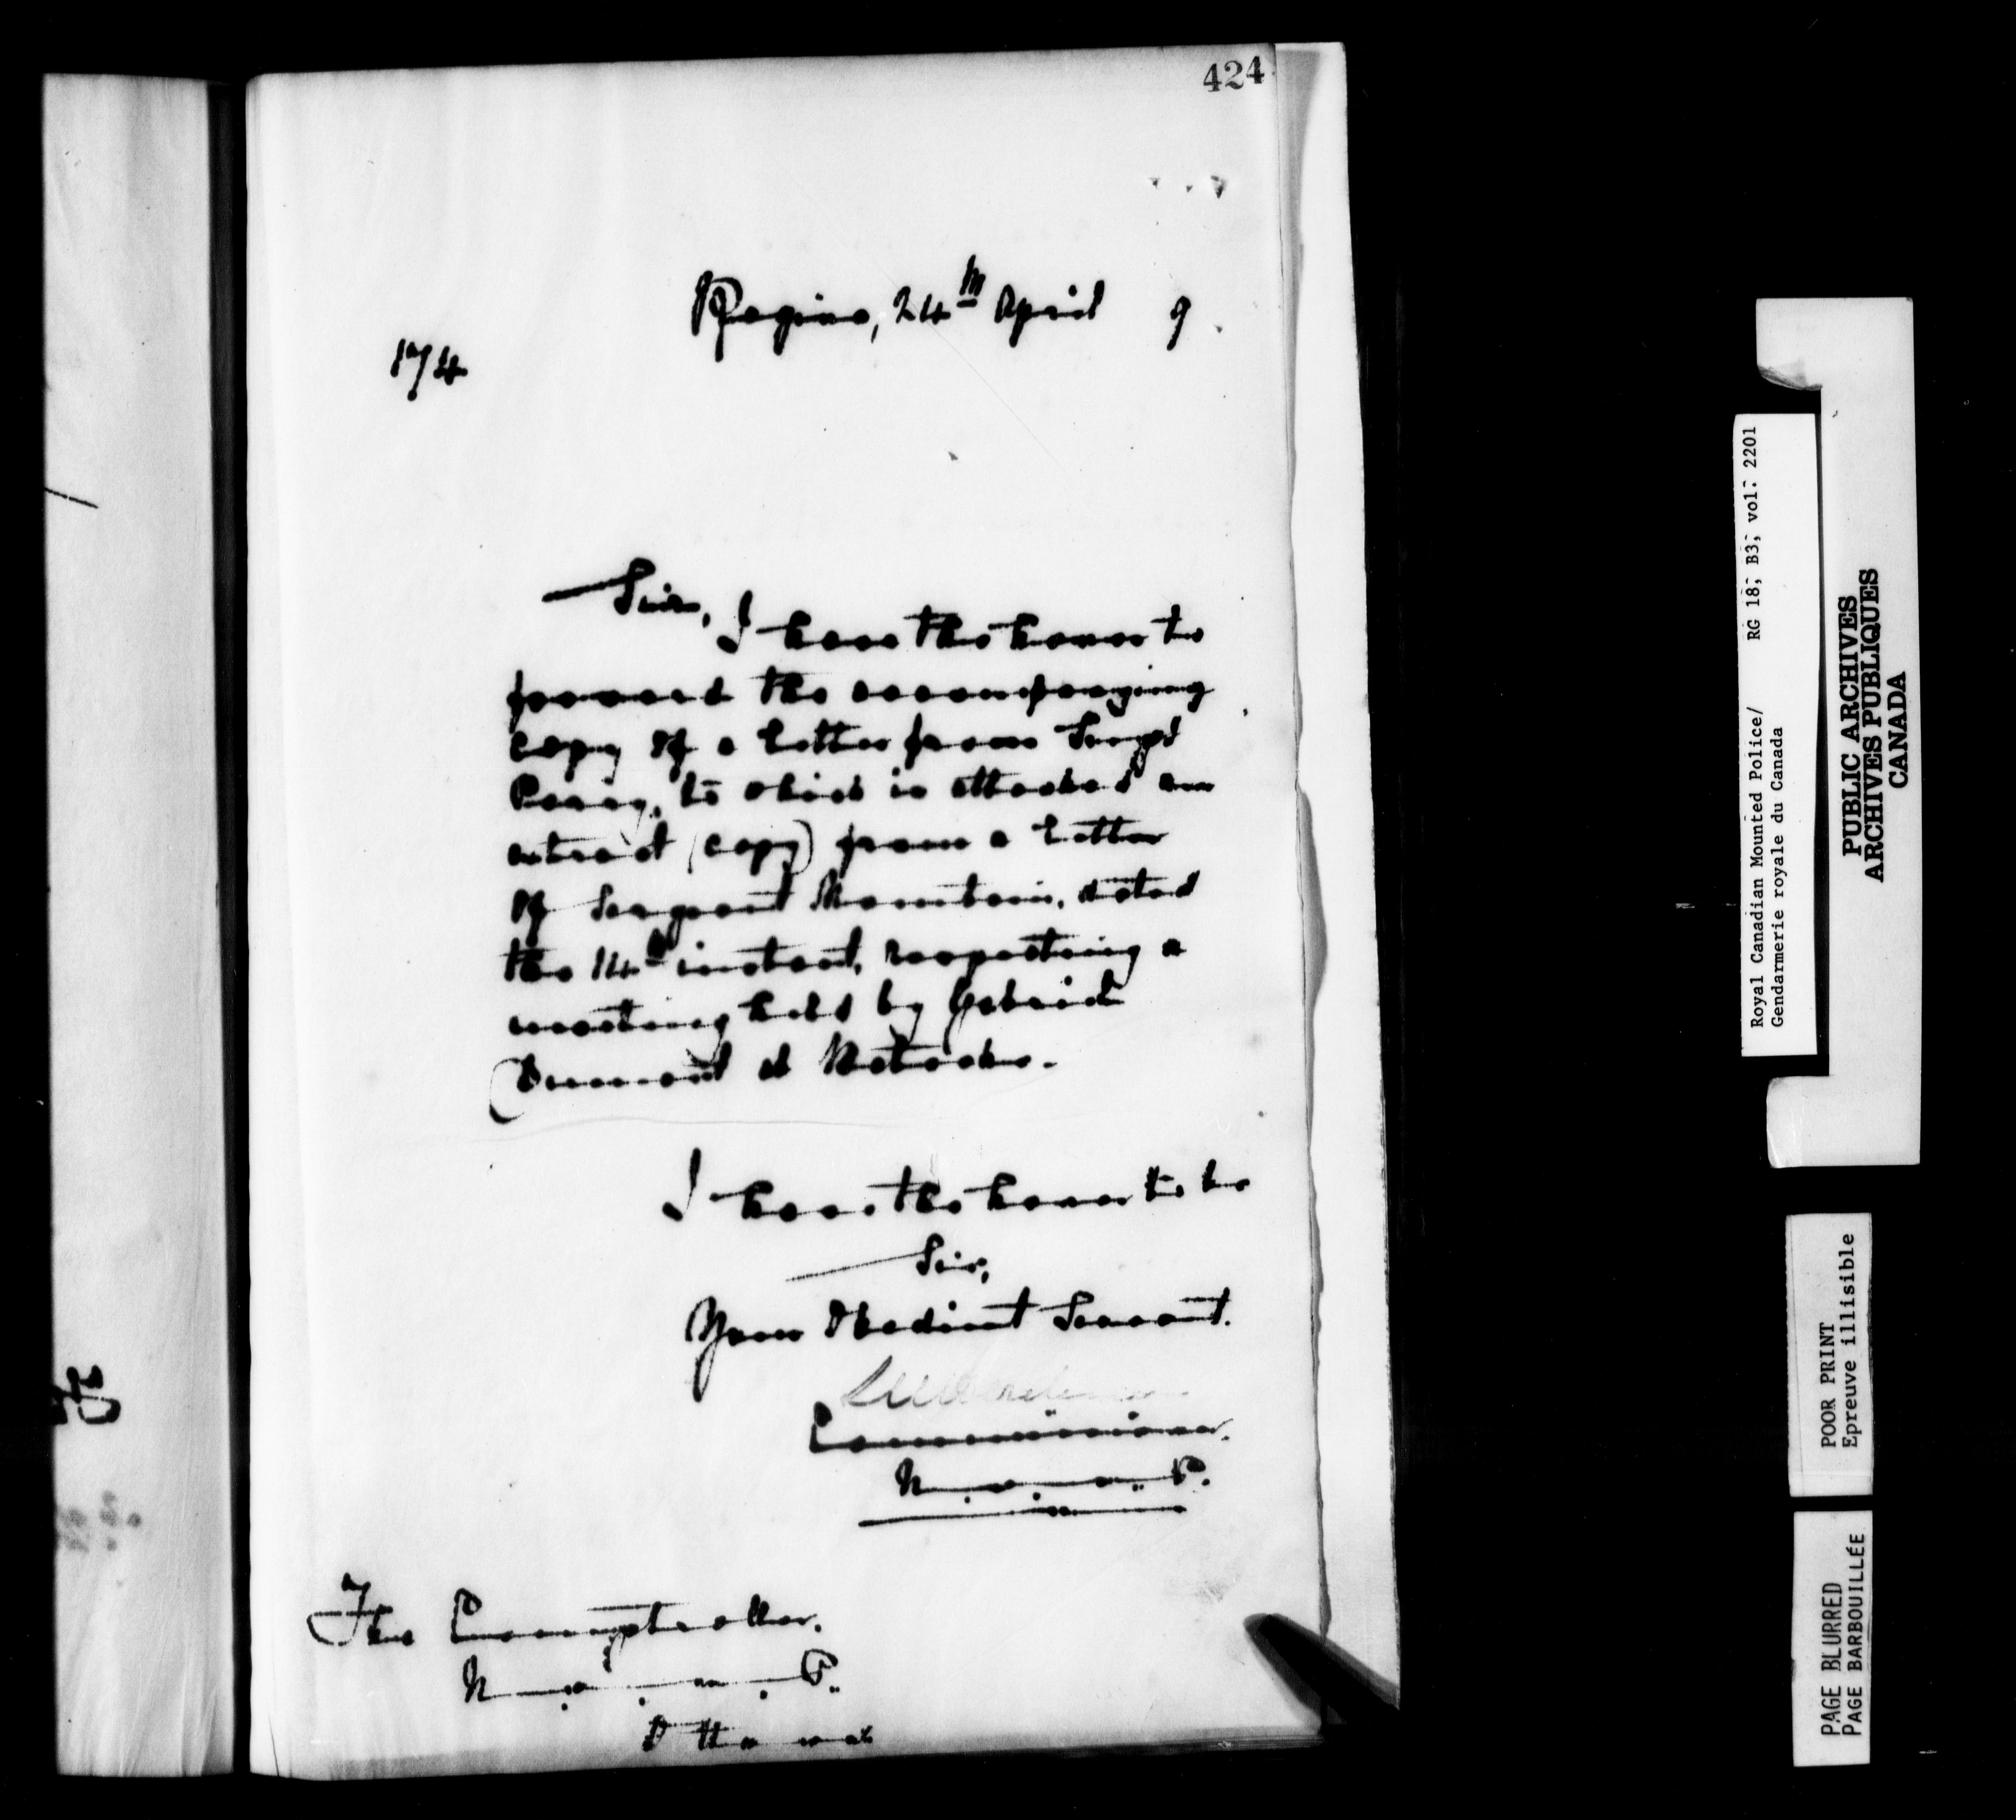 424
Regina, 24th April 9.
174
Sir,
I have the honor to
forward the accompanying
copy of a letter from Supt
Perry, to which is attached an
extract (copy) from a letter
of Sergeant Mountain, dated
the 14th instant, respecting a
meeting held by Gabriel
Dumont at Batoche.
I have the honor to be
Sir,
Your Obedient Servant.
Commissioner.
N. W. M. P.
The Comptroller.
N. W. M. P.
Ottawa
Royal Canadian Mounted Police/ RG 18, B3, vol. 2201
Gendarmerie royale du Canada
PUBLIC ARCHIVES
ARCHIVES PUBLIQUES
CANADA
POOR PRINT
Epreuve illisible
PAGE BLURRED
PAGE BARBOUILLÉE